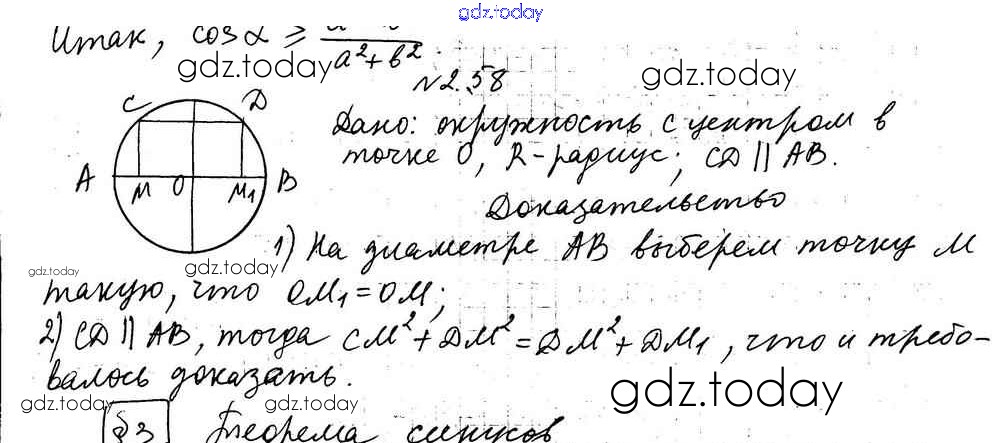 gdz.today
Итак, cos α ≥
a²+b²
gdz.today
gdz.today
N2.58
C D
Дано: окружность с центром в
точке O, R-радиус; CD || AB.
A M O M₁ B
Доказательство
1) На диаметре AB выберем точку M
gdz.today
gdz.today
такую, что OM₁=OM;
2) CD || AB, тогда CM²+DM²=DM²+DM₁, что и требо-
валось доказать.
gdz.today
gdz.today
gdz.today
§3 Теорема синусов